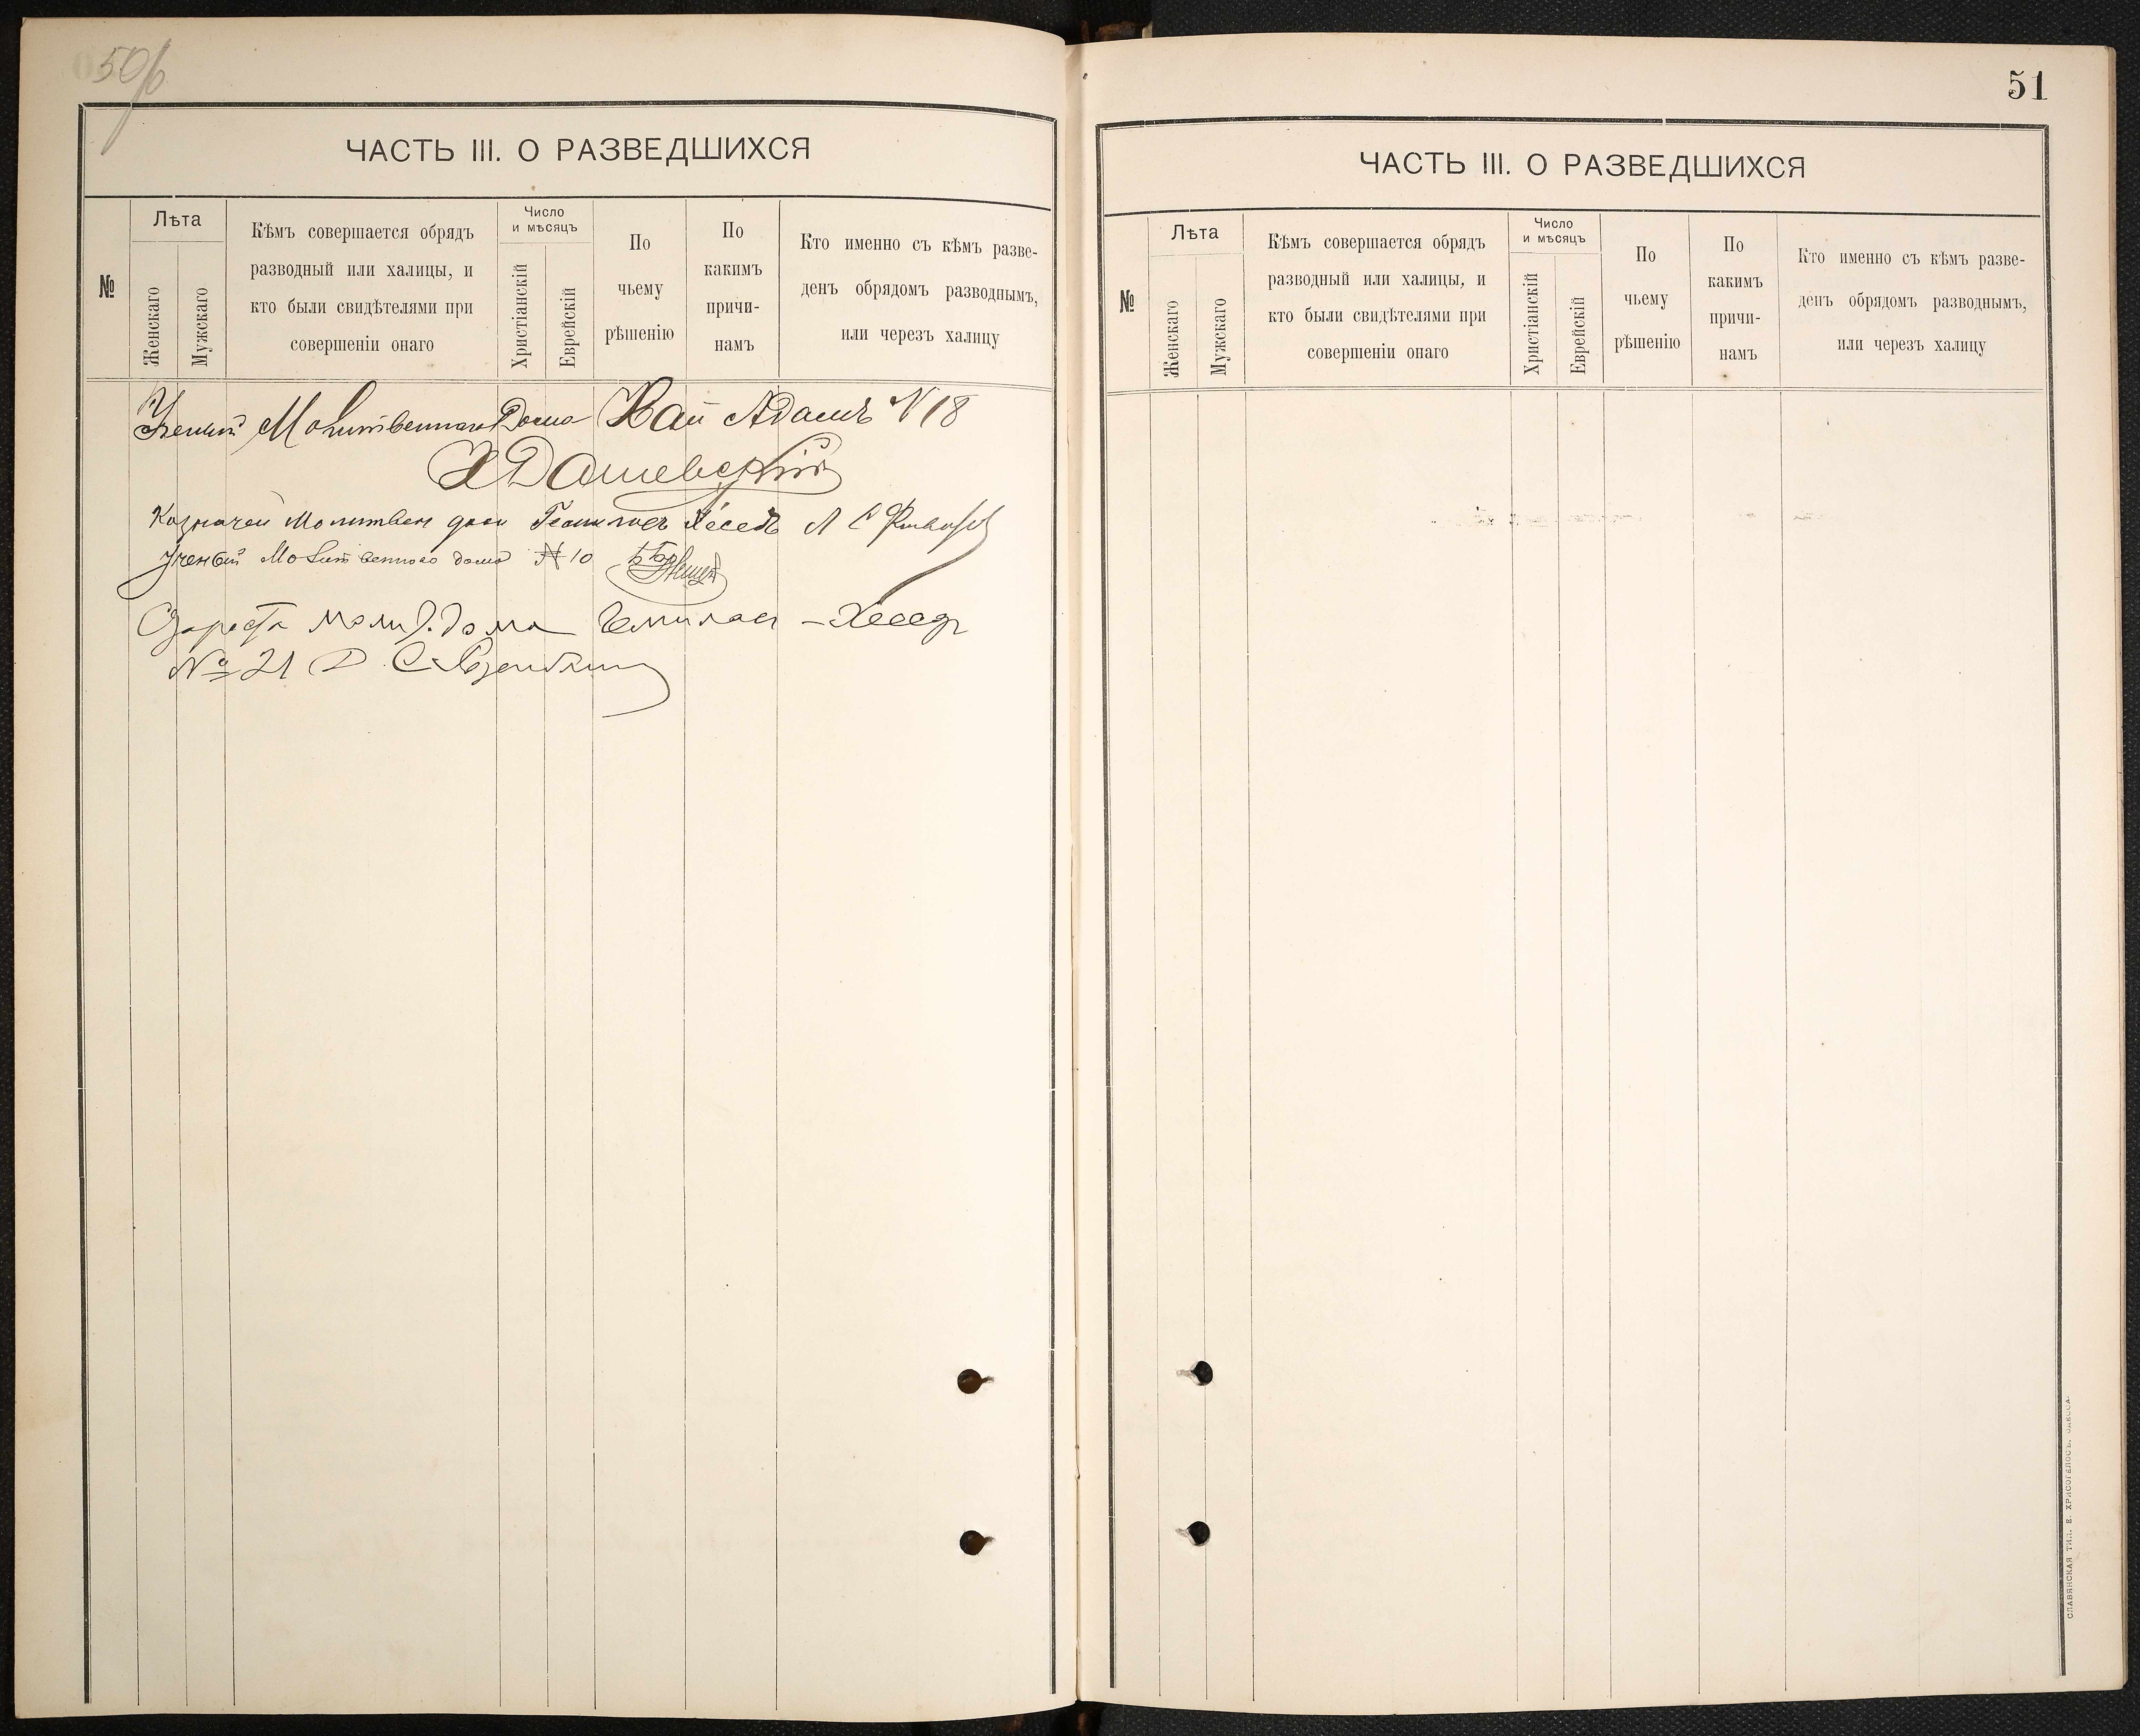 50б
ЧАСТЬ III. О РАЗВЕДШИХСЯ
№
Лѣта
Женскаго
Мужскаго
Кѣмъ совершается обрядъ
разводный или халицы, и
кто были свидѣтелями при
совершеніи онаго
Число
и мѣсяцъ
Христіанскій
Еврейскій
По
чьему
рѣшенію
По
какимъ
причи-
намъ
Кто именно съ кѣмъ разве-
денъ обрядомъ разводнымъ,
или черезъ халицу
Ученый Молитвеннаго Дома Хаи Адамъ №18
Х Дашевскій
Казначей Молитвен дома Гемилос Хеседъ
Ученый Молитвенного дома № 10
Староста молит. дома Гемилас - Хесед
№ 21 Д. С.
51
ЧАСТЬ III. О РАЗВЕДШИХСЯ
№
Лѣта
Женскаго
Мужскаго
Кѣмъ совершается обрядъ
разводный или халицы, и
кто были свидѣтелями при
совершеніи онаго
Число
и мѣсяцъ
Христіанскій
Еврейскій
По
чьему
рѣшенію
По
какимъ
причи-
намъ
Кто именно съ кѣмъ разве-
денъ обрядомъ разводнымъ,
или черезъ халицу
СЛАВЯНСКАЯ ТИП. Е. ХРИСОГЕЛОСЪ, ОДЕССА.